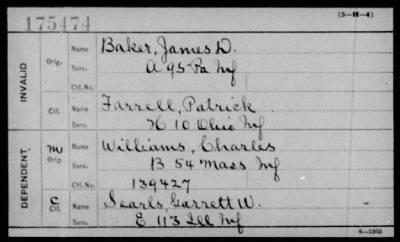 175474
(3-H-4)
INVALID
Orig.
Name Baker, James D.
Serv. A 95 Pa Inf
Ctf. No.
Ctf.
Name Farrell, Patrick
Serv. H 10 Ohio Inf
DEPENDENT.
M
Orig.
Name Williams, Charles
Serv. B 54 Mass Inf
Ctf. No. 139427
C
Ctf.
Name Searls, Garrett W.
Serv. E 113 Ill Inf
6-1303